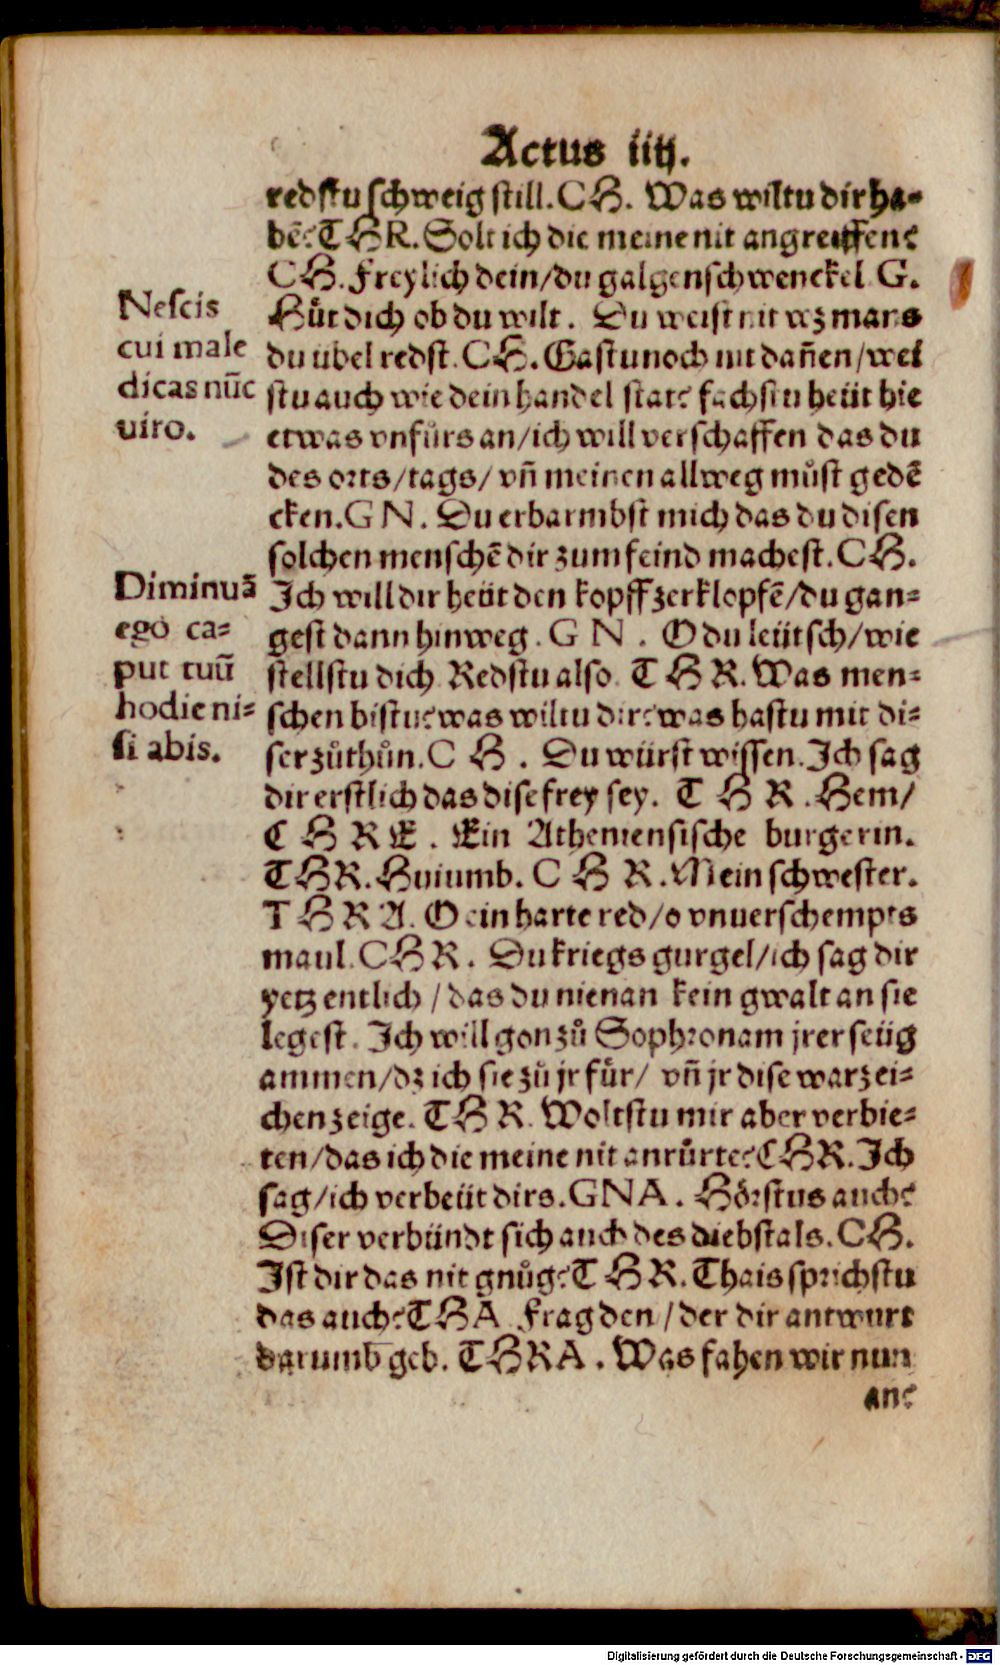 Actus iiij.
redstu schweig still. CH. Was wiltu dir ha-
bē? THR. Solt ich die meine nit angreiffen?
CH. Freylich dein/du galgenschwenckel G.
Hůt dich ob du wilt. Du weist nit wz mans
du übel redst. CH. Gastu noch nit dañen/wei
stu auch wie dein handel stat? fachstu heüt hie
etwas vnfůrs an/ich will verschaffen das du
des orts/tags/ vñ meinen allweg můst gedē
cken. GN. Du erbarmbst mich das du disen
solchen menschē dir zum feind machest. CH.
Ich will dir heüt den kopff zerklopfē/du gan-
gest dann hinweg. GN. O du leütsch/wie
stellstu dich Redstu also. THR. Was men-
schen bistu? was wiltu dir? was hastu mit di-
ser zůthůn. CH. Du würst wissen. Ich sag
dir erstlich das dise frey sey. THR. Hem/
CHRE. Ein Atheniensische burgerin.
THR. Huiumb. CHR. Mein schwester.
THRA. O ein harte red/o vnuerschempts
maul. CHR. Du kriegs gurgel/ich sag dir
yetz entlich/das du nienan kein gwalt an sie
legest. Ich will gon zů Sophronam jrer seüg
ammen/dz ich sie zů jr für/ vñ jr dise warzei-
chen zeige. THR. Woltstu mir aber verbie-
ten/das ich die meine nit anrůrte? CHR. Ich
sag/ich verbeüt dirs. GNA. Hörstus auch?
Diser verbündt sich auch des diebstals. CH.
Ist dir das nit gnůg? THR. Thais sprichstu
das auch? THA Frag den/der dir antwurt
darumb geb. THRA. Was fahen wir nun
an?
Nescis
cui male
dicas nūc
viro.
Diminuā
ego ca-
put tuū
hodie ni-
si abis.
Digitalisierung gefördert durch die Deutsche Forschungsgemeinschaft - DFG